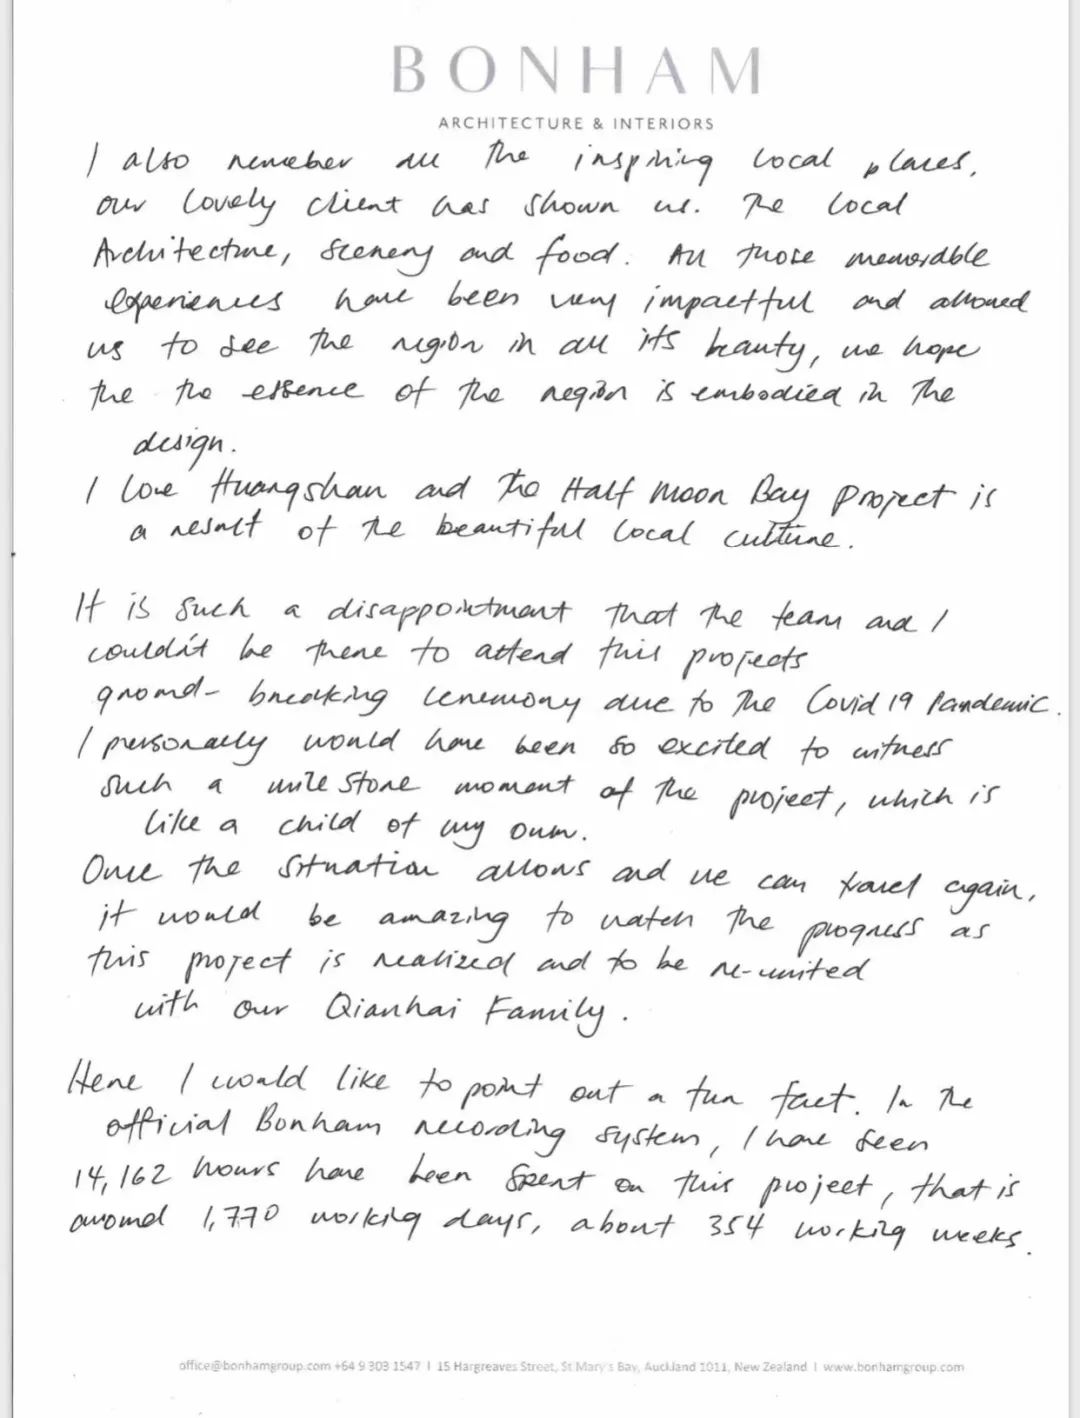 BONHAM
ARCHITECTURE & INTERIORS
I also remeber all the inspiring local places,
our lovely client has shown us. The local
Architecture, scenery and food. All those memorable
experiences have been very impactful and allowed
us to see the region in all its beauty, we hope
the the essence of the region is embodied in the
design.
I love Huangshan and the Half Moon Bay project is
a result of the beautiful local culture.
It is such a disappointment that the team and I
couldn't be there to attend this projects
ground-breaking ceremony due to the Covid 19 Pandemic.
I personally would have been so excited to witness
such a mile stone moment of the project, which is
like a child of my own.
Once the situation allows and we can travel again,
it would be amazing to watch the progress as
this project is realized and to be re-united
with our Qianhai Family.
Here I would like to point out a fun fact. In the
official Bonham recording system, I have seen
14,162 hours have been spent on this project, that is
around 1,770 working days, about 354 working weeks.
office@bonhamgroup.com +64 9 303 1547 | 15 Hargreaves Street, St Mary's Bay, Auckland 1011, New Zealand | www.bonhamgroup.com